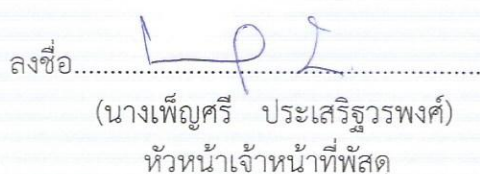 ลงชื่อ
(นางเพ็ญศรี ประเสริฐวรพงศ์)
หัวหน้าเจ้าหน้าที่พัสดุ